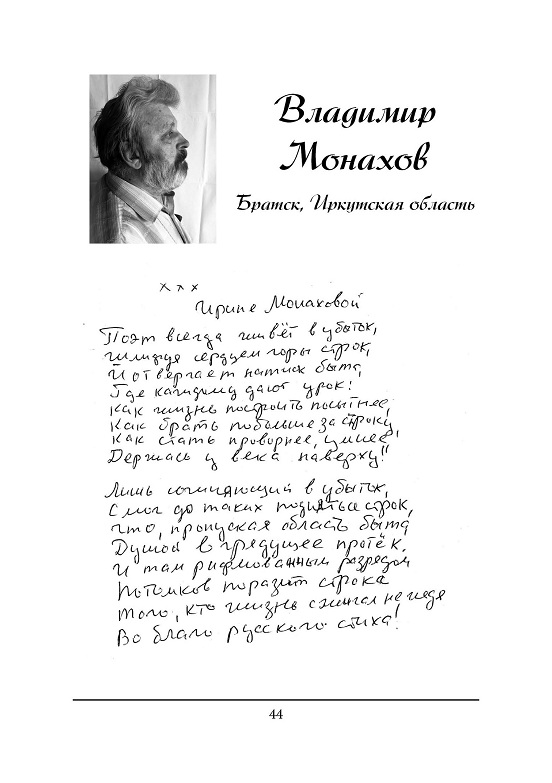 Владимир
Монахов
Братск, Иркутская область
х х х
Ирине Монаховой
Поэт всегда живёт в убыток,
сердцем горы строк,
И отвергает натиск быта,
Где каждому дают урок!
Как жизнь построить посытнее,
Как брать побольше за строку,
Как стать проворнее, умнее,
Держась у века наверху!!
Лишь сочиняющий в убыток,
Смог до таких подняться строк,
Что, пропуская область быта,
Душой в грядущее протёк.
И там рифмованным разрядом
Потомков поразит строка
Того, кто жизнь сжигал не глядя
Во благо русского стиха!
44